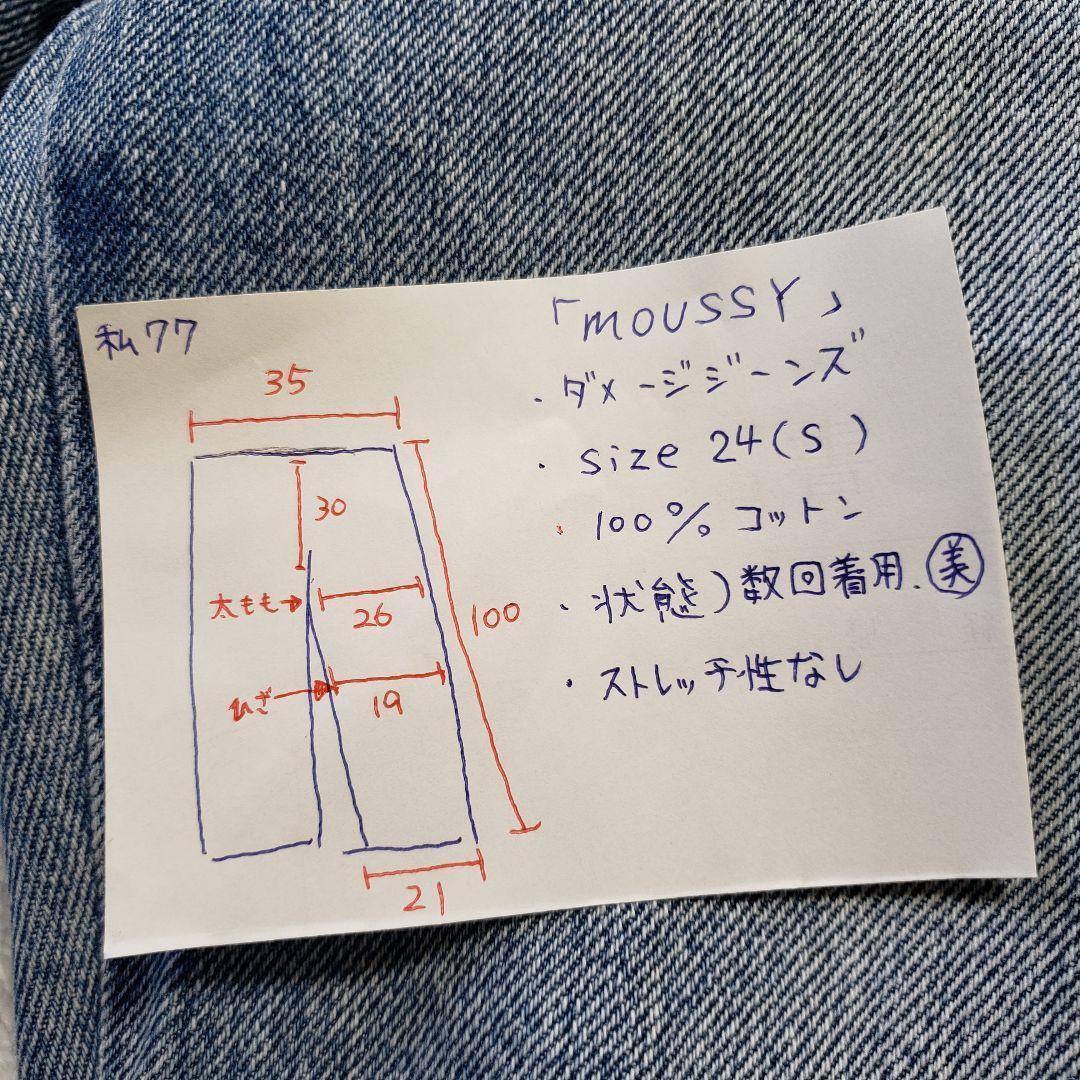 私77
35
30
太もも→
26
100
ひざ→
19
21
「MOUSSY」
・ダメージジーンズ
・size 24(S)
・100% コットン
・状態)数回着用.美
・ストレッチ性なし